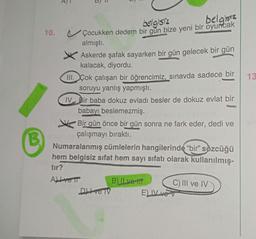 belgisiz
belgisiz
10. Çocukken dedem bir gün bize yeni bir oyuncak
almıştı.
Askerde şafak sayarken bir gün gelecek bir gün
kalacak, diyordu.
III. Çok çalışan bir öğrencimiz, sınavda sadece bir
soruyu yanlış yapmıştı.
IV. Bir baba dokuz evladı besler de dokuz evlat bir
babayı beslemezmiş.
Bir gün önce bir gün sonra ne fark eder, dedi ve
çalışmayı bıraktı.
B
Numaralanmış cümlelerin hangilerinde "bir" sözcüğü
hem belgisiz sıfat hem sayı sıfatı olarak kullanılmış-
tır?
A) I ve II B) II ve III C) III ve IV
D) I ve IV E) IV ve V
13